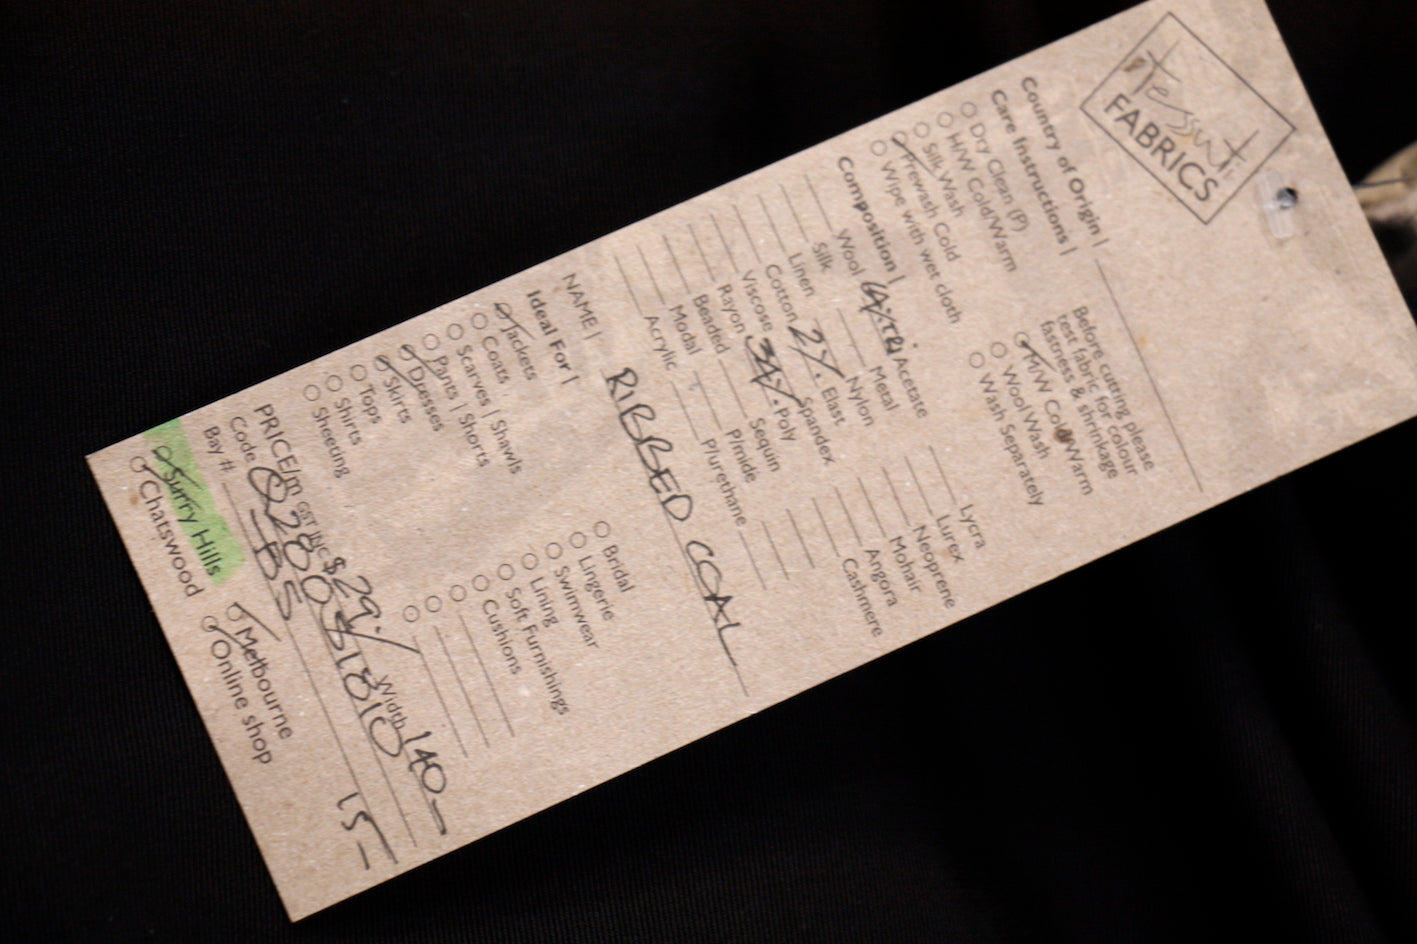 tessuti
FABRICS
Country of Origin |
Care Instructions |
Dry Clean (P)
H/W Cold/Warm
Silk Wash
Prewash Cold
Wipe with wet cloth
Before cutting please
test fabric for colour
fastness & shrinkage
M/W Cold/Warm
Wool Wash
Wash Separately
Composition |
Wool Acetate Lycra
Silk Metal Lurex
Linen Nylon Neoprene
Cotton 2% Elast Mohair
Viscose Spandex Angora
Rayon 34% Poly Cashmere
Beaded Sequin
Modal P/mide
Acrylic P/urethane
NAME | RIBBED COAL
Ideal For |
Jackets Bridal
Coats Lingerie
Scarves | Shawls Swimwear
Pants | Shorts Lining
Dresses Soft Furnishings
Skirts Cushions
Tops
Shirts
Sheeting
PRICE/m GST INC $29./ Width 140-
Code
Bay #: D5 15-
Surry Hills Melbourne
Chatswood Online shop